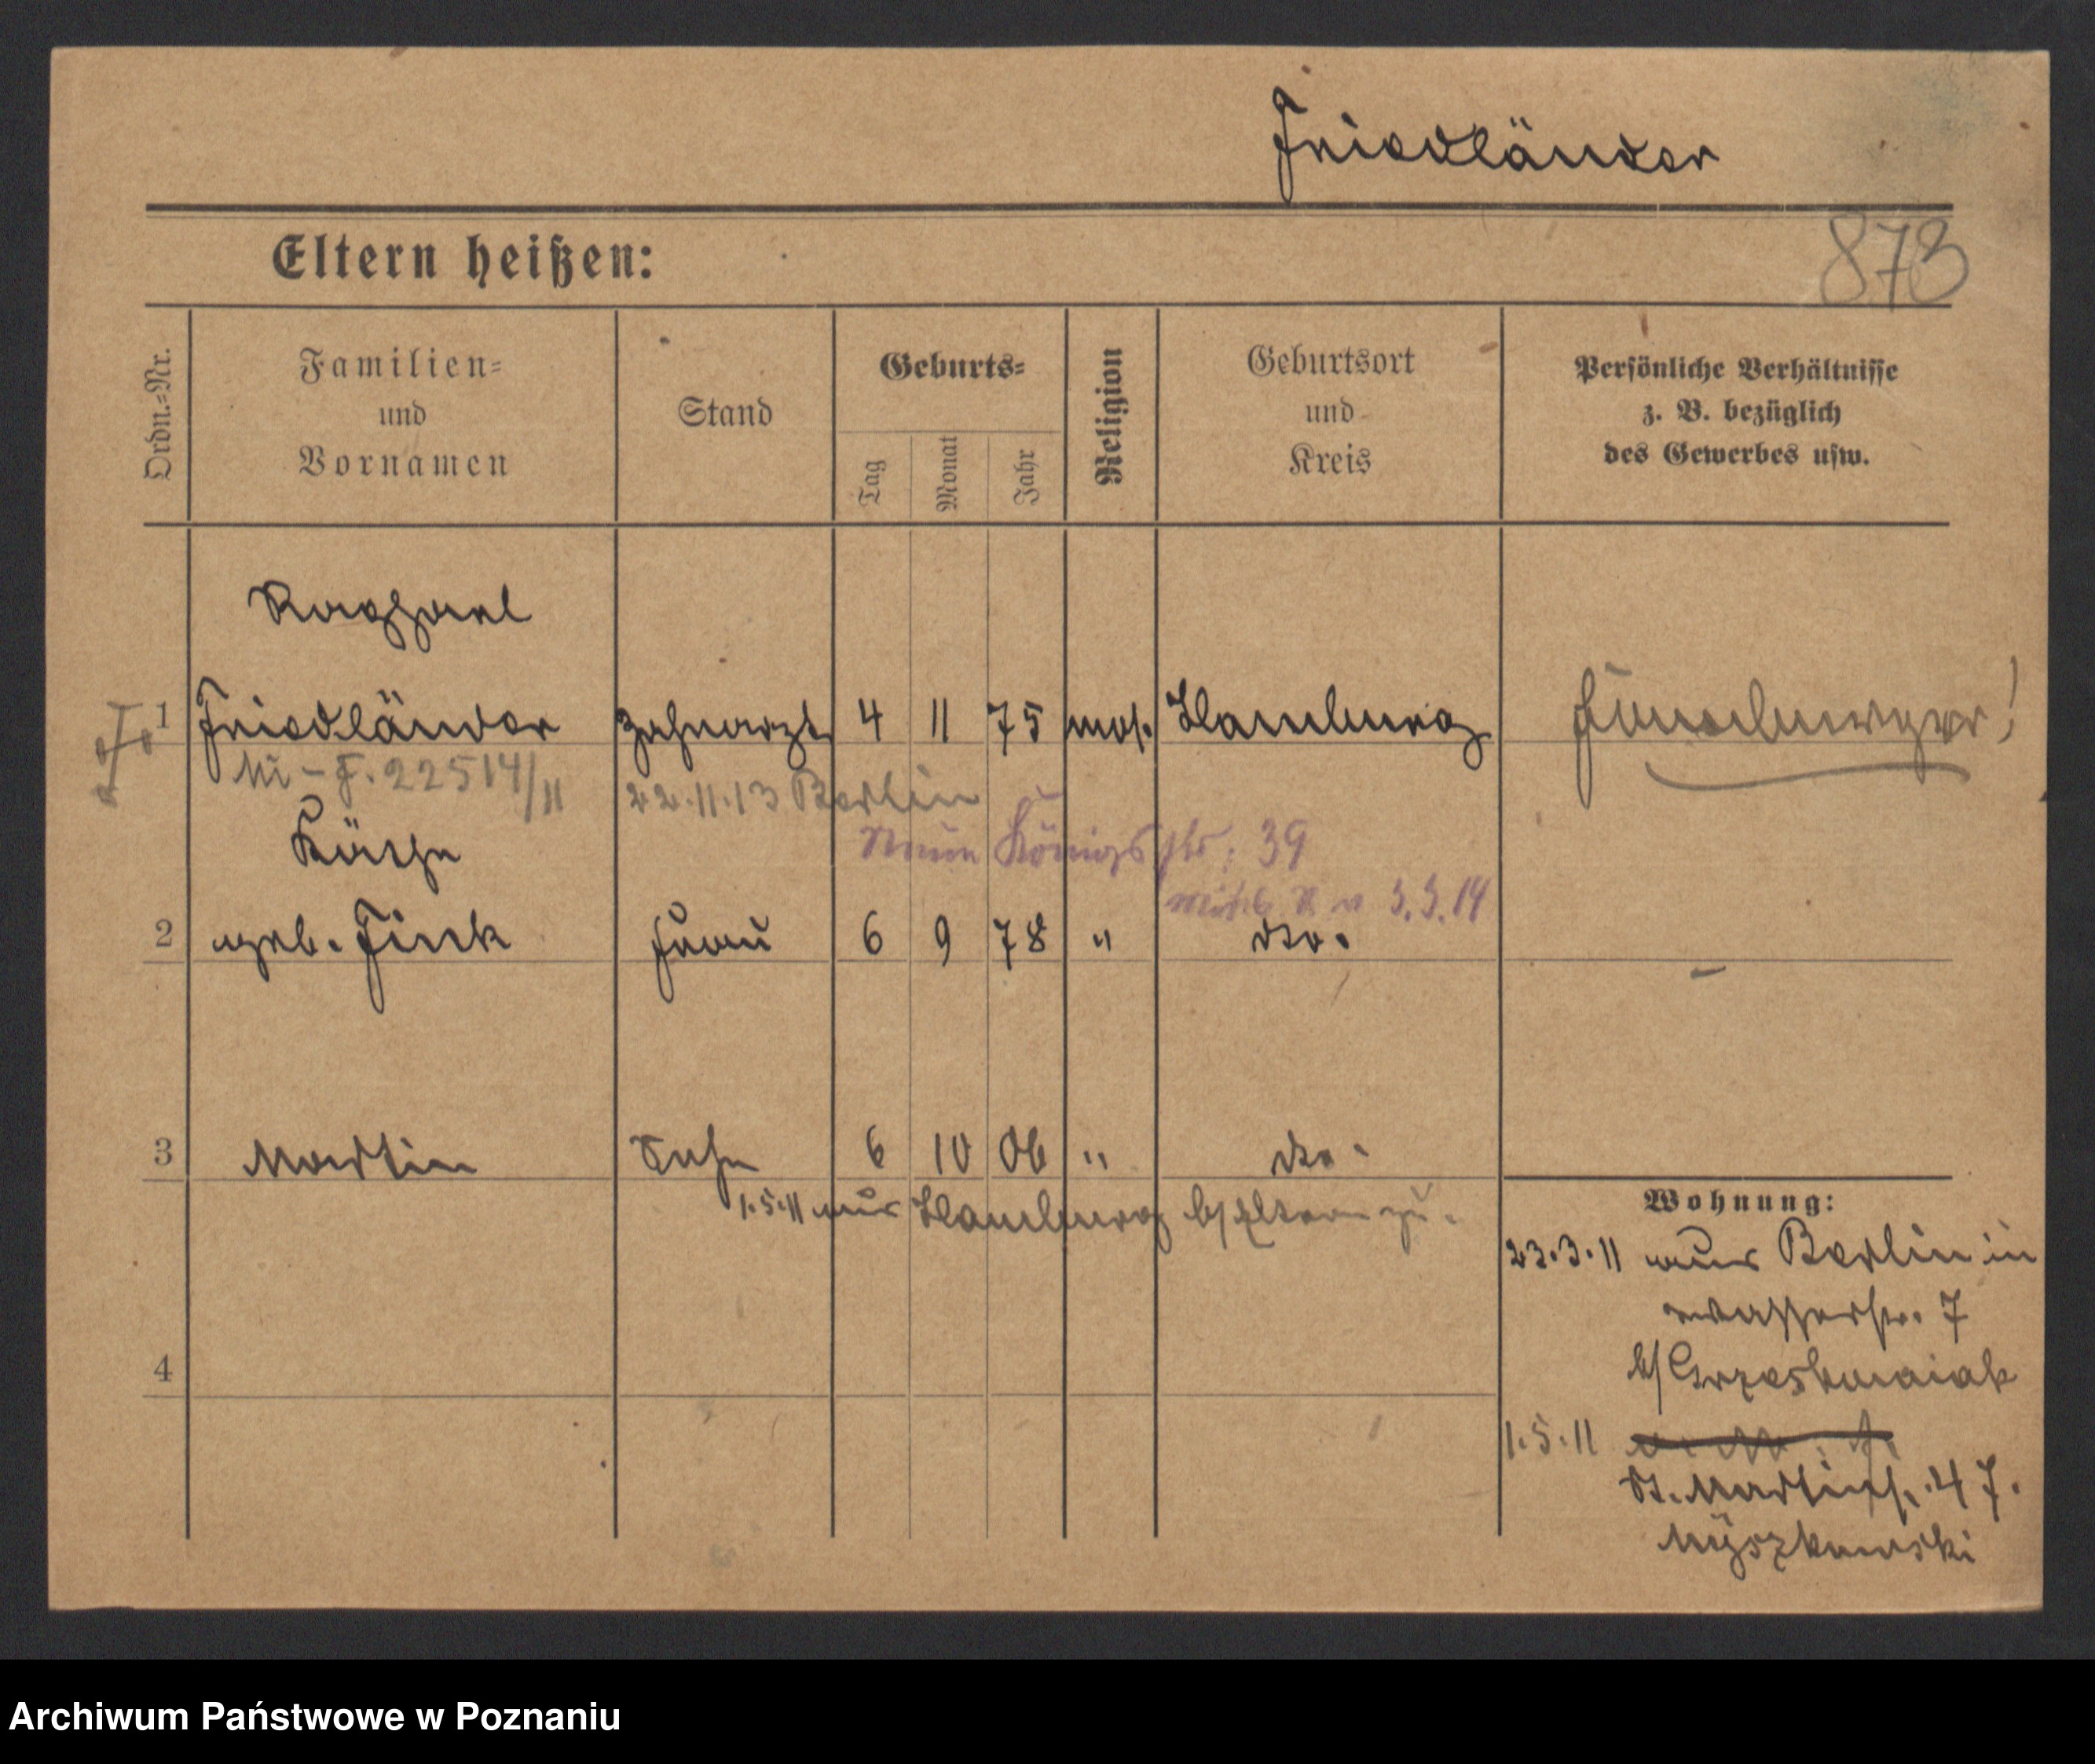 Friedländer
Eltern heißen:
873
Ordn.-Nr.
Familien-
und
Vornamen
Stand
Geburts-
Tag
Monat
Jahr
Religion
Geburtsort
und
Kreis
Persönliche Verhältnisse
z. B. bezüglich
des Gewerbes usw.
Raphael
1 Friedländer Zahnarzt 4 11 75 mos. Hamburg Hamburger!
Mi - F. 22514/11 22.11.13 Berlin
Käthe Neue Königsstr. 39
3.3.14
2 geb. Fink Frau 6 9 78 " dto.
3 Martin Sohn 6 10 06 " dto.
1.5.11 aus Hamburg b/Eltern zu.
4
Wohnung:
23.3.11 aus Berlin in
Wasserstr. 7
b/Grzeskowiak
1.5.11
St. Martinstr. 47.
Myszkowski
Archiwum Państwowe w Poznaniu